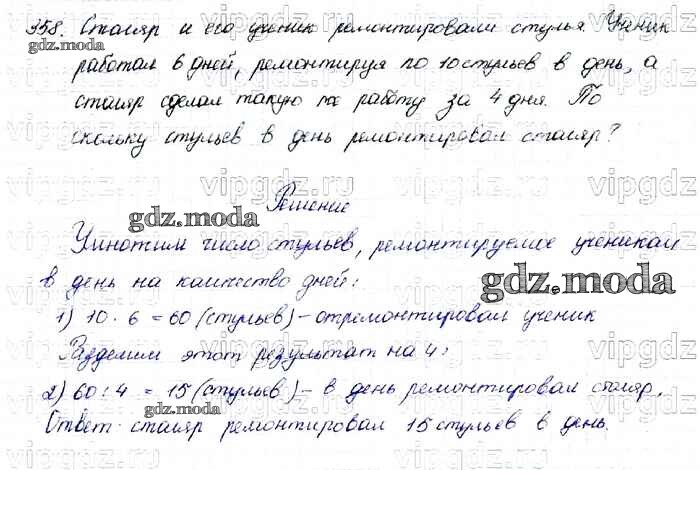 358. Столяр и его ученик ремонтировали стулья. Ученик
gdz.moda
работал 6 дней, ремонтируя по 10 стульев в день, а
столяр сделал такую же работу за 4 дня. По
скольку стульев в день ремонтировал столяр?
vipgdz vipgdz vipgdz vipgdz
Решение
gdz.moda
Умножим число стульев, ремонтируемое учеником
в день на количество дней:
gdz.moda
1) 10 · 6 = 60 (стульев) – отремонтировал ученик
Разделим этот результат на 4:
2) 60 : 4 = 15 (стульев) – в день ремонтировал столяр.
gdz.moda
Ответ: столяр ремонтировал 15 стульев в день.
vipgdz vipgdz vipgdz vipgdz